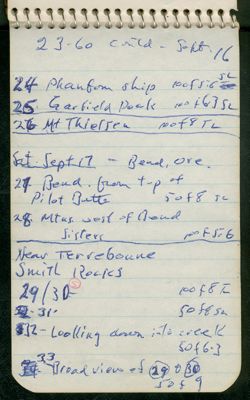 23-60 cont'd - Sept. 16
24 Phantom ship 100f5.6 SL
25 Garfield Peak 100f63 SL
26 Mt Thielsen 100f8 SL
Sat. Sept 17 - Bend, Ore.
27 Bend. from top of
Pilot Butte 50f8 SL
28 Mtns west of Bend
Sisters 100f5.6
Near Terrebonne
Smith Rocks
29/30 100f8 SL
31- 50f8 SL
32- Looking down into creek
50f6.3
33 Broad view of 29 & 30
50f9